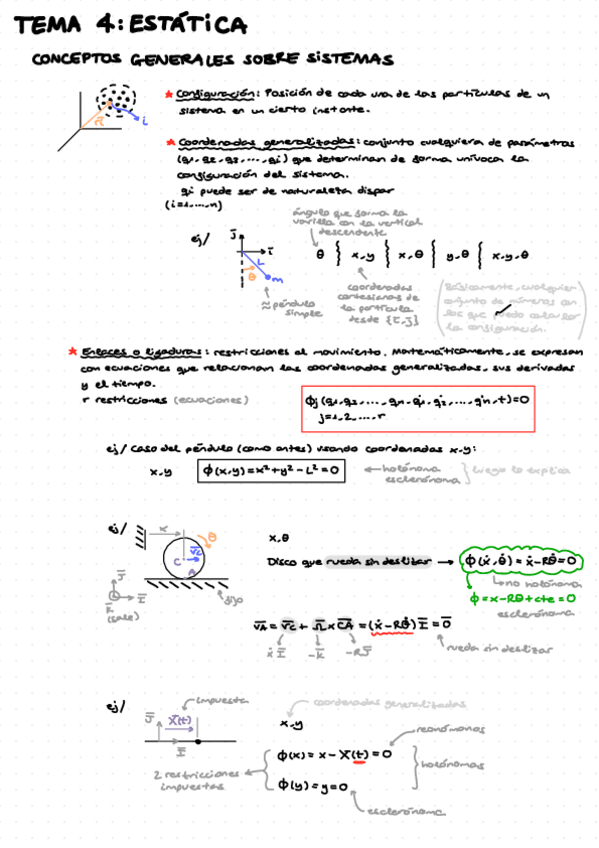 TEMA 4: ESTÁTICA
CONCEPTOS GENERALES SOBRE SISTEMAS
* Configuración: Posición de cada una de las partículas de un
sistema en un cierto instante.
r̄ᵢ
i
* Coordenadas generalizadas: conjunto cualquiera de parámetros
(q1, q2, q3, ..., qi) que determinan de forma unívoca la
configuración del sistema.
qi puede ser de naturaleza dispar
(i=1,...,n)
ángulo que forma la
varilla con la vertical
descendente
ej/
J̄
ī
L
θ
m
≈ péndulo
simple
θ } x,y } x,θ } y,θ } x,y,θ
coordenadas
cartesianas de
la partícula
desde {ī,J̄}
(Básicamente, cualquier
conjunto de números con
los que puedo calcular
la configuración.)
* Enlaces o ligaduras: restricciones al movimiento. Matemáticamente, se expresan
con ecuaciones que relacionan las coordenadas generalizadas, sus derivadas
y el tiempo.
r restricciones (ecuaciones)
ϕj(q1,q2,...,qn,q̇1,q̇2,...,q̇n,t)=0
j=1,2,...,r
ej/ Caso del péndulo (como antes) usando coordenadas x,y:
x,y
ϕ(x,y)=x²+y²-L²=0
← holónoma
esclerónoma } luego lo explica
ej/
x
θ
v̄c
C
A
J̄
Ī
K̄
(sale)
fijo
x,θ
Disco que rueda sin deslizar → ϕ(ẋ,θ̇)=ẋ-Rθ̇=0
no holónoma
ϕ=x-Rθ+cte=0
esclerónoma
v̄A=v̄C+Ω̄×C̄A=(ẋ-Rθ̇)Ī=0̄
ẋĪ
-k̄
-RJ̄
rueda sin deslizar
ej/
impuesta
J̄
X(t)
Ī
coordenadas generalizadas
x,y
reónomonas
ϕ(x)=x-X(t)=0
2 restricciones
impuestas
holónomas
ϕ(y)=y=0
esclerónoma